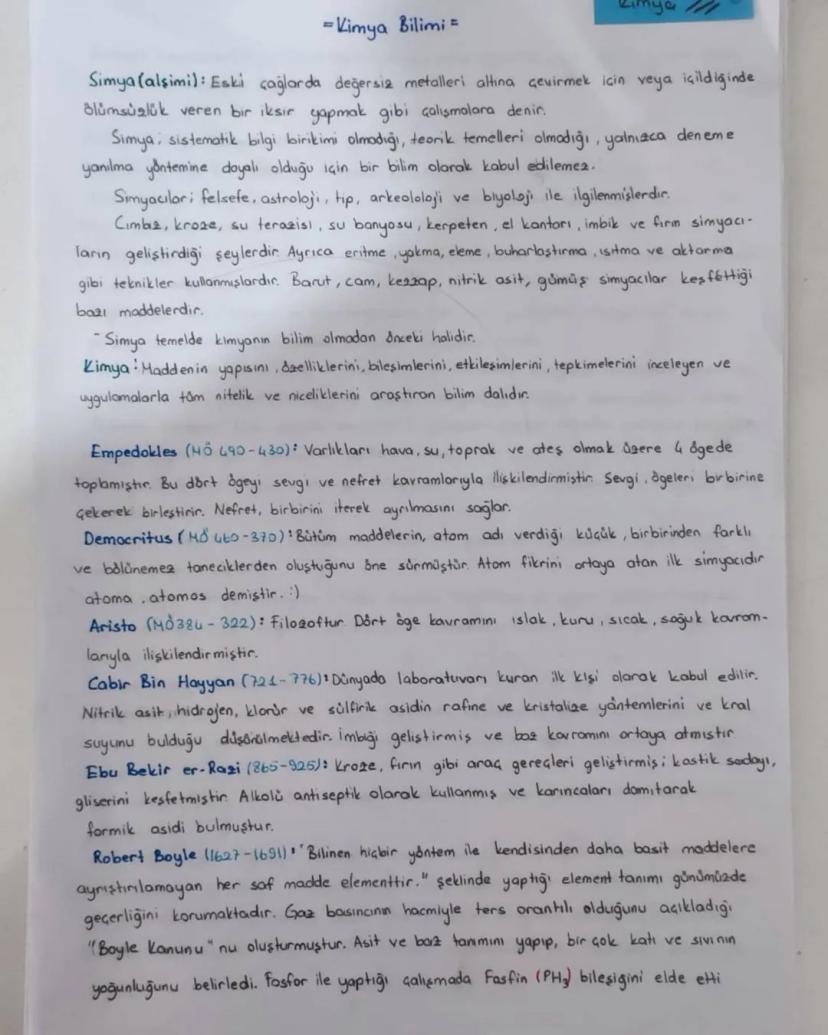 Kimya
= Kimya Bilimi =
Simya (alşimi): Eski çağlarda değersiz metalleri altına çevirmek için veya içildiğinde
ölümsüzlük veren bir iksir yapmak gibi çalışmalara denir.
Simya; sistematik bilgi birikimi olmadığı, teorik temelleri olmadığı, yalnızca deneme
yanılma yöntemine dayalı olduğu için bir bilim olarak kabul edilemez.
Simyacılar; felsefe, astroloji, tıp, arkeololoji ve biyoloji ile ilgilenmişlerdir.
Cımbız, kroze, su terazisi, su banyosu, kerpeten, el kantarı, imbik ve fırın simyacı-
ların geliştirdiği şeylerdir. Ayrıca eritme, yakma, eleme, buharlaştırma, ısıtma ve aktarma
gibi teknikler kullanmışlardır. Barut, cam, kezzap, nitrik asit, gümüş simyacılar keşfettiği
bazı maddelerdir.
- Simya temelde kimyanın bilim olmadan önceki halidir.
Kimya: Maddenin yapısını, özelliklerini, bileşimlerini, etkileşimlerini, tepkimelerini inceleyen ve
uygulamalarla tüm nitelik ve niceliklerini araştıran bilim dalıdır.
Empedokles (MÖ 490-430): Varlıkları hava, su, toprak ve ateş olmak üzere 4 ögede
toplamıştır. Bu dört ögeyi sevgi ve nefret kavramlarıyla ilişkilendirmiştir. Sevgi, ögeleri birbirine
çekerek birleştirir. Nefret, birbirini iterek ayrılmasını sağlar.
Democritus (MÖ 460-370): Bütüm maddelerin, atom adı verdiği küçük, birbirinden farklı
ve bölünemez taneciklerden oluştuğunu öne sürmüştür. Atom fikrini ortaya atan ilk simyacıdır
atoma, atomos demiştir. :)
Aristo (MÖ 384-322): Filozoftur. Dört öge kavramını ıslak, kuru, sıcak, soğuk kavram-
larıyla ilişkilendirmiştir.
Cabir Bin Hayyan (721-776): Dünyada laboratuvarı kuran ilk kişi olarak kabul edilir.
Nitrik asit, hidrojen, klorür ve sülfirik asidin rafine ve kristalize yöntemlerini ve kral
suyunu bulduğu düşünülmektedir. İmbiği geliştirmiş ve baz kavramını ortaya atmıştır
Ebu Bekir er-Razi (865-925): Kroze, fırın gibi araç gereçleri geliştirmiş; kastik sodayı,
gliserini keşfetmiştir. Alkolü antiseptik olarak kullanmış ve karıncaları damıtarak
formik asidi bulmuştur.
Robert Boyle (1627-1691): "Bilinen hiçbir yöntem ile kendisinden daha basit maddelere
ayrıştırılamayan her saf madde elementtir." şeklinde yaptığı element tanımı günümüzde
geçerliğini korumaktadır. Gaz basıncının hacmiyle ters orantılı olduğunu açıkladığı
"Boyle Kanunu" nu oluşturmuştur. Asit ve baz tanımını yapıp, bir çok katı ve sıvının
yoğunluğunu belirledi. Fosfor ile yaptığı çalışmada Fosfin (PH₃) bileşiğini elde etti